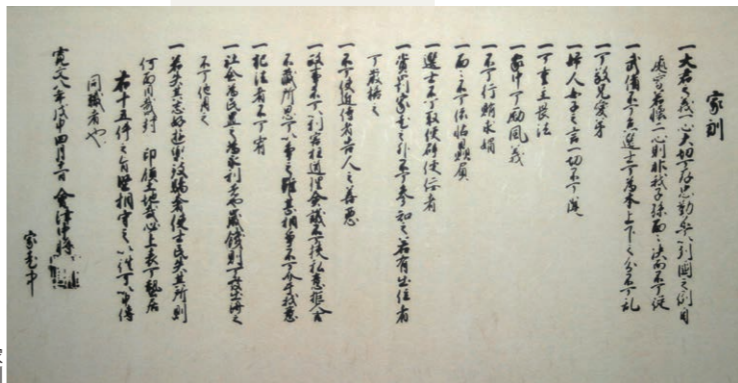 家訓
一大君之義一心大切可存忠勤不可以列国之例自
処焉若懐二心則非我子孫面々決而不可従
一武備不可怠選士可為本上下之分不可乱
一可敬兄愛弟
一婦人女子之言一切不可聞
一可重主畏法
一家中可励風義
一不可行賄求媚
一面々不可依怙贔屓
一選士不可取便辟便佞者
一賞罰家老之外不可参知之若有出位者
可厳格之
一不可使近侍者告人之善悪
一政事不可以利害枉道理僉議不可挟私意拒人言
不蔵所思可以争之雖甚相争不可介于我意
一犯法者不可宥
一社倉為民置之為永利者也歳饑則可発出済之
不可他用之
一若失其志好遊楽致驕奢使士民失其所則
何面目戴封印領土地哉必上表可蟄居
右十五件之旨堅相守之以往可以申伝
同職者也
寛文八年戊申四月十一日 会津中将
家老中